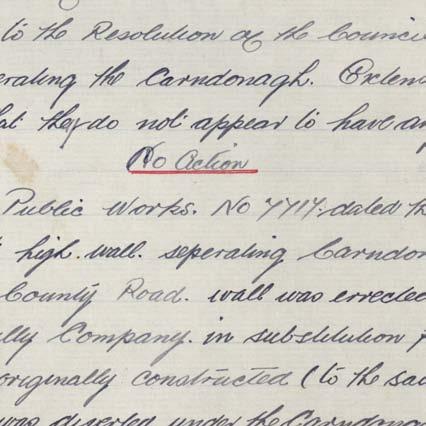 to the Resolution of the Counci
erating the Carndonagh. Exten
at they do not appear to have an
No Action
Public Works. No 7717. dated th
high. wall. seperating Carndon
County Road. wall was errected
lly Company. in substitution f
originally constructed (to the sa
was diverted under the Carndonag